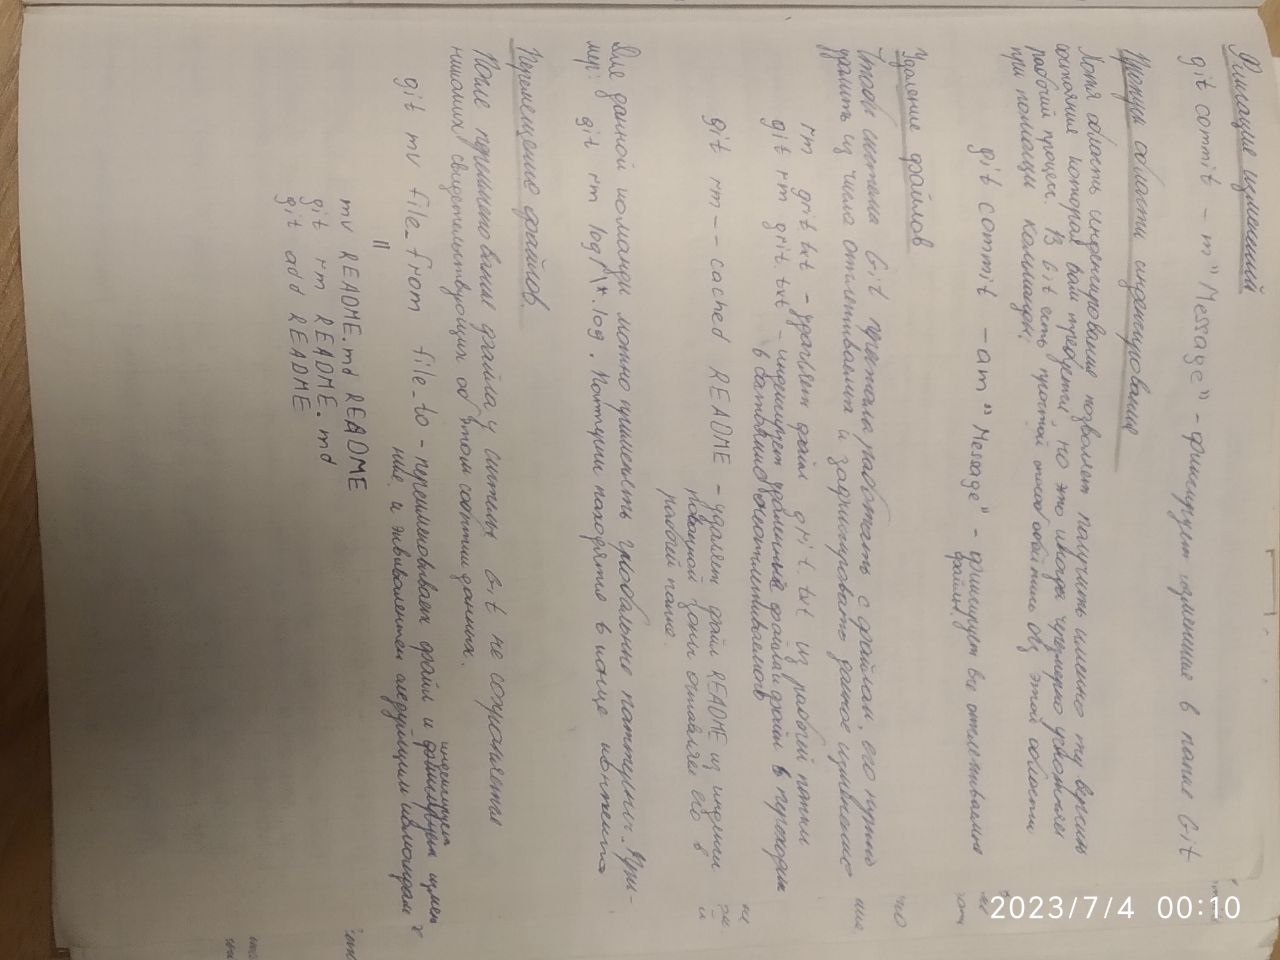 Фиксация изменений
git commit -m "Message" - фиксирует изменение в папке Git
Пропуск области индексирования
Хотя область индексирования позволяет получить именно ту версию
состояния которая вам требуется, но это иногда чрезмерно усложняет
рабочий процесс. В Git есть простой способ обойтись без этой области
при помощи команды:
git commit -am "Message" - фиксирует все отслеживаемые
файлы
Удаление файлов
Чтобы система Git престала работать с файлом, его нужно
удалить из числа отслеживаемых и зафиксировать данное изменение
rm grit.txt - удаляет файл grit.txt из рабочей папки
git rm grit.txt - индексирует удаленный файл и файл переходит
в неотслеживаемого
git rm --cached README - удаляет файл README из индекси
рованной зоны оставляет его в
рабочей папке.
Для данной команды можно применять глобальные паттерны. При-
мер: git rm log/\*.log. Паттерны находятся в конце конспекта
Перемещение файлов.
После переименования файла у системы Git не сохраняется
никаких свидетельствующих об этом событии данных.
git mv file_from file_to - переименовывает файл и индексирует измен
ние, и эквивалентен следующим командам
||
mv README.md README
git rm README.md
git add README
2023/7/4 00:10